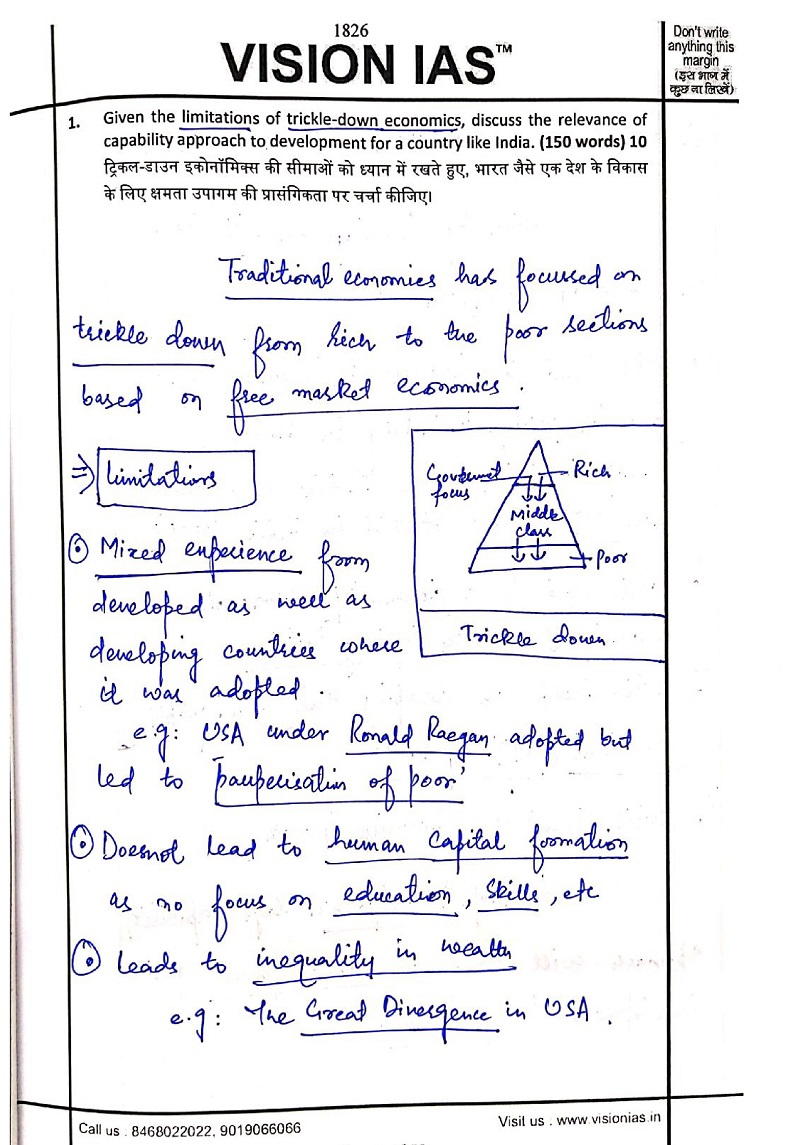 1826
VISION IAS™
Don't write
anything this
margin
(इस भाग में
कुछ ना लिखें)
1. Given the limitations of trickle-down economics, discuss the relevance of
capability approach to development for a country like India. (150 words) 10
ट्रिकल-डाउन इकोनॉमिक्स की सीमाओं को ध्यान में रखते हुए, भारत जैसे एक देश के विकास
के लिए क्षमता उपागम की प्रासंगिकता पर चर्चा कीजिए।
Traditional economics has focussed on
trickle down from rich to the poor sections
based on free market economics.
⇒ Limitations
Government
focus
Rich
Middle
class
Poor
Trickle down
⊙ Mixed experience from
developed as well as
developing countries where
it was adopted.
e.g: USA under Ronald Raegan adopted but
led to 'pauperisation of poor'
⊙ Doesnot lead to human capital formation
as no focus on education, skills, etc
⊙ Leads to inequality in wealth
e.g: The Great Divergence in USA.
Call us : 8468022022, 9019066066
Visit us : www.visionias.in